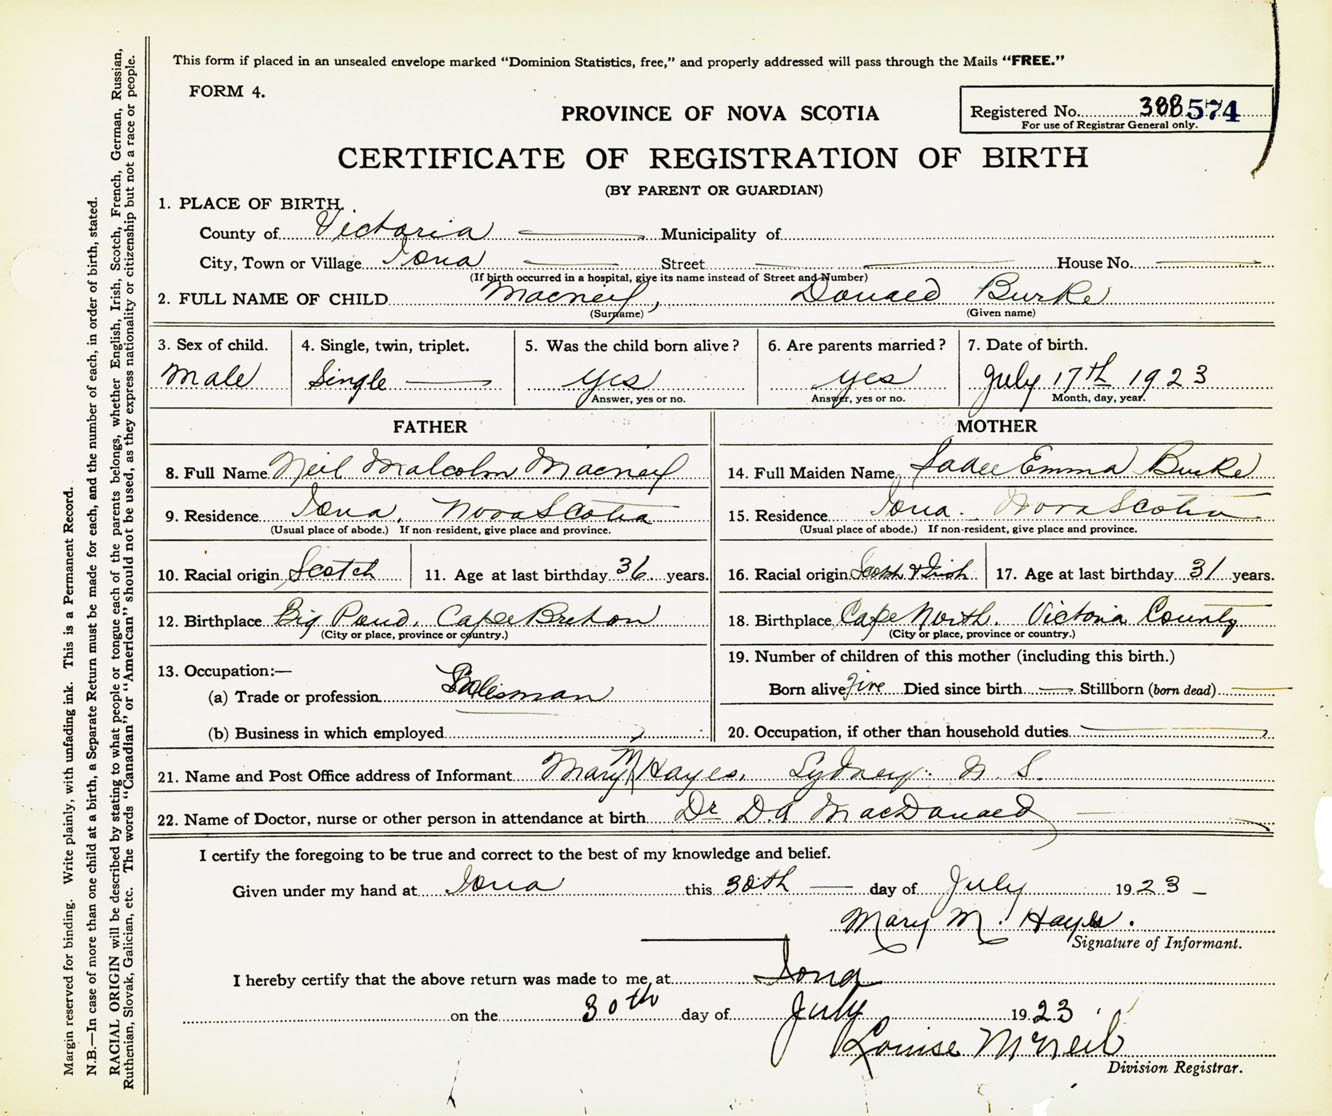 This form if placed in an unsealed envelope marked "Dominion Statistics, free," and properly addressed will pass through the Mails "FREE."
FORM 4.
PROVINCE OF NOVA SCOTIA
Registered No. 388574
For use of Registrar General only.
CERTIFICATE OF REGISTRATION OF BIRTH
(BY PARENT OR GUARDIAN)
1. PLACE OF BIRTH.
County of Victoria Municipality of
City, Town or Village Iona Street House No.
(If birth occurred in a hospital, give its name instead of Street and Number)
2. FULL NAME OF CHILD Macneil, Donald Burke
(Surname) (Given name)
3. Sex of child. 4. Single, twin, triplet. 5. Was the child born alive? 6. Are parents married? 7. Date of birth.
Male Single yes yes July 17th 1923
Answer, yes or no. Answer, yes or no. Month, day, year.
FATHER
8. Full Name Neil Malcolm Macneil
9. Residence Iona, Nova Scotia
(Usual place of abode.) If non-resident, give place and province.
10. Racial origin Scotch 11. Age at last birthday 36 years.
12. Birthplace Big Pond, Cape Breton
(City or place, province or country.)
13. Occupation:—
(a) Trade or profession Salesman
(b) Business in which employed
MOTHER
14. Full Maiden Name Sadee Emma Burke
15. Residence Iona. Nova Scotia
(Usual place of abode.) If non-resident, give place and province.
16. Racial origin Scotch & Irish 17. Age at last birthday 31 years.
18. Birthplace Cape North. Victoria County
(City or place, province or country.)
19. Number of children of this mother (including this birth.)
Born alive five Died since birth Stillborn (born dead)
20. Occupation, if other than household duties
21. Name and Post Office address of Informant Mary M Hayes, Sydney. N. S.
22. Name of Doctor, nurse or other person in attendance at birth Dr D.A MacDonald
I certify the foregoing to be true and correct to the best of my knowledge and belief.
Given under my hand at Iona this 30th day of July 1923
Mary M. Hayes.
Signature of Informant.
I hereby certify that the above return was made to me at Iona
on the 30th day of July 1923
Louise McNeil
Division Registrar.
Margin reserved for binding. Write plainly, with unfading ink. This is a Permanent Record.
N.B.—In case of more than one child at a birth, a Separate Return must be made for each, and the number of each, in order of birth, stated.
RACIAL ORIGIN will be described by stating to what people or tongue each of the parents belongs, whether English, Irish, Scotch, French, German, Russian,
Ruthenian, Slovak, Galician, etc. The words "Canadian" or "American" should not be used, as they express nationality or citizenship but not a race or people.